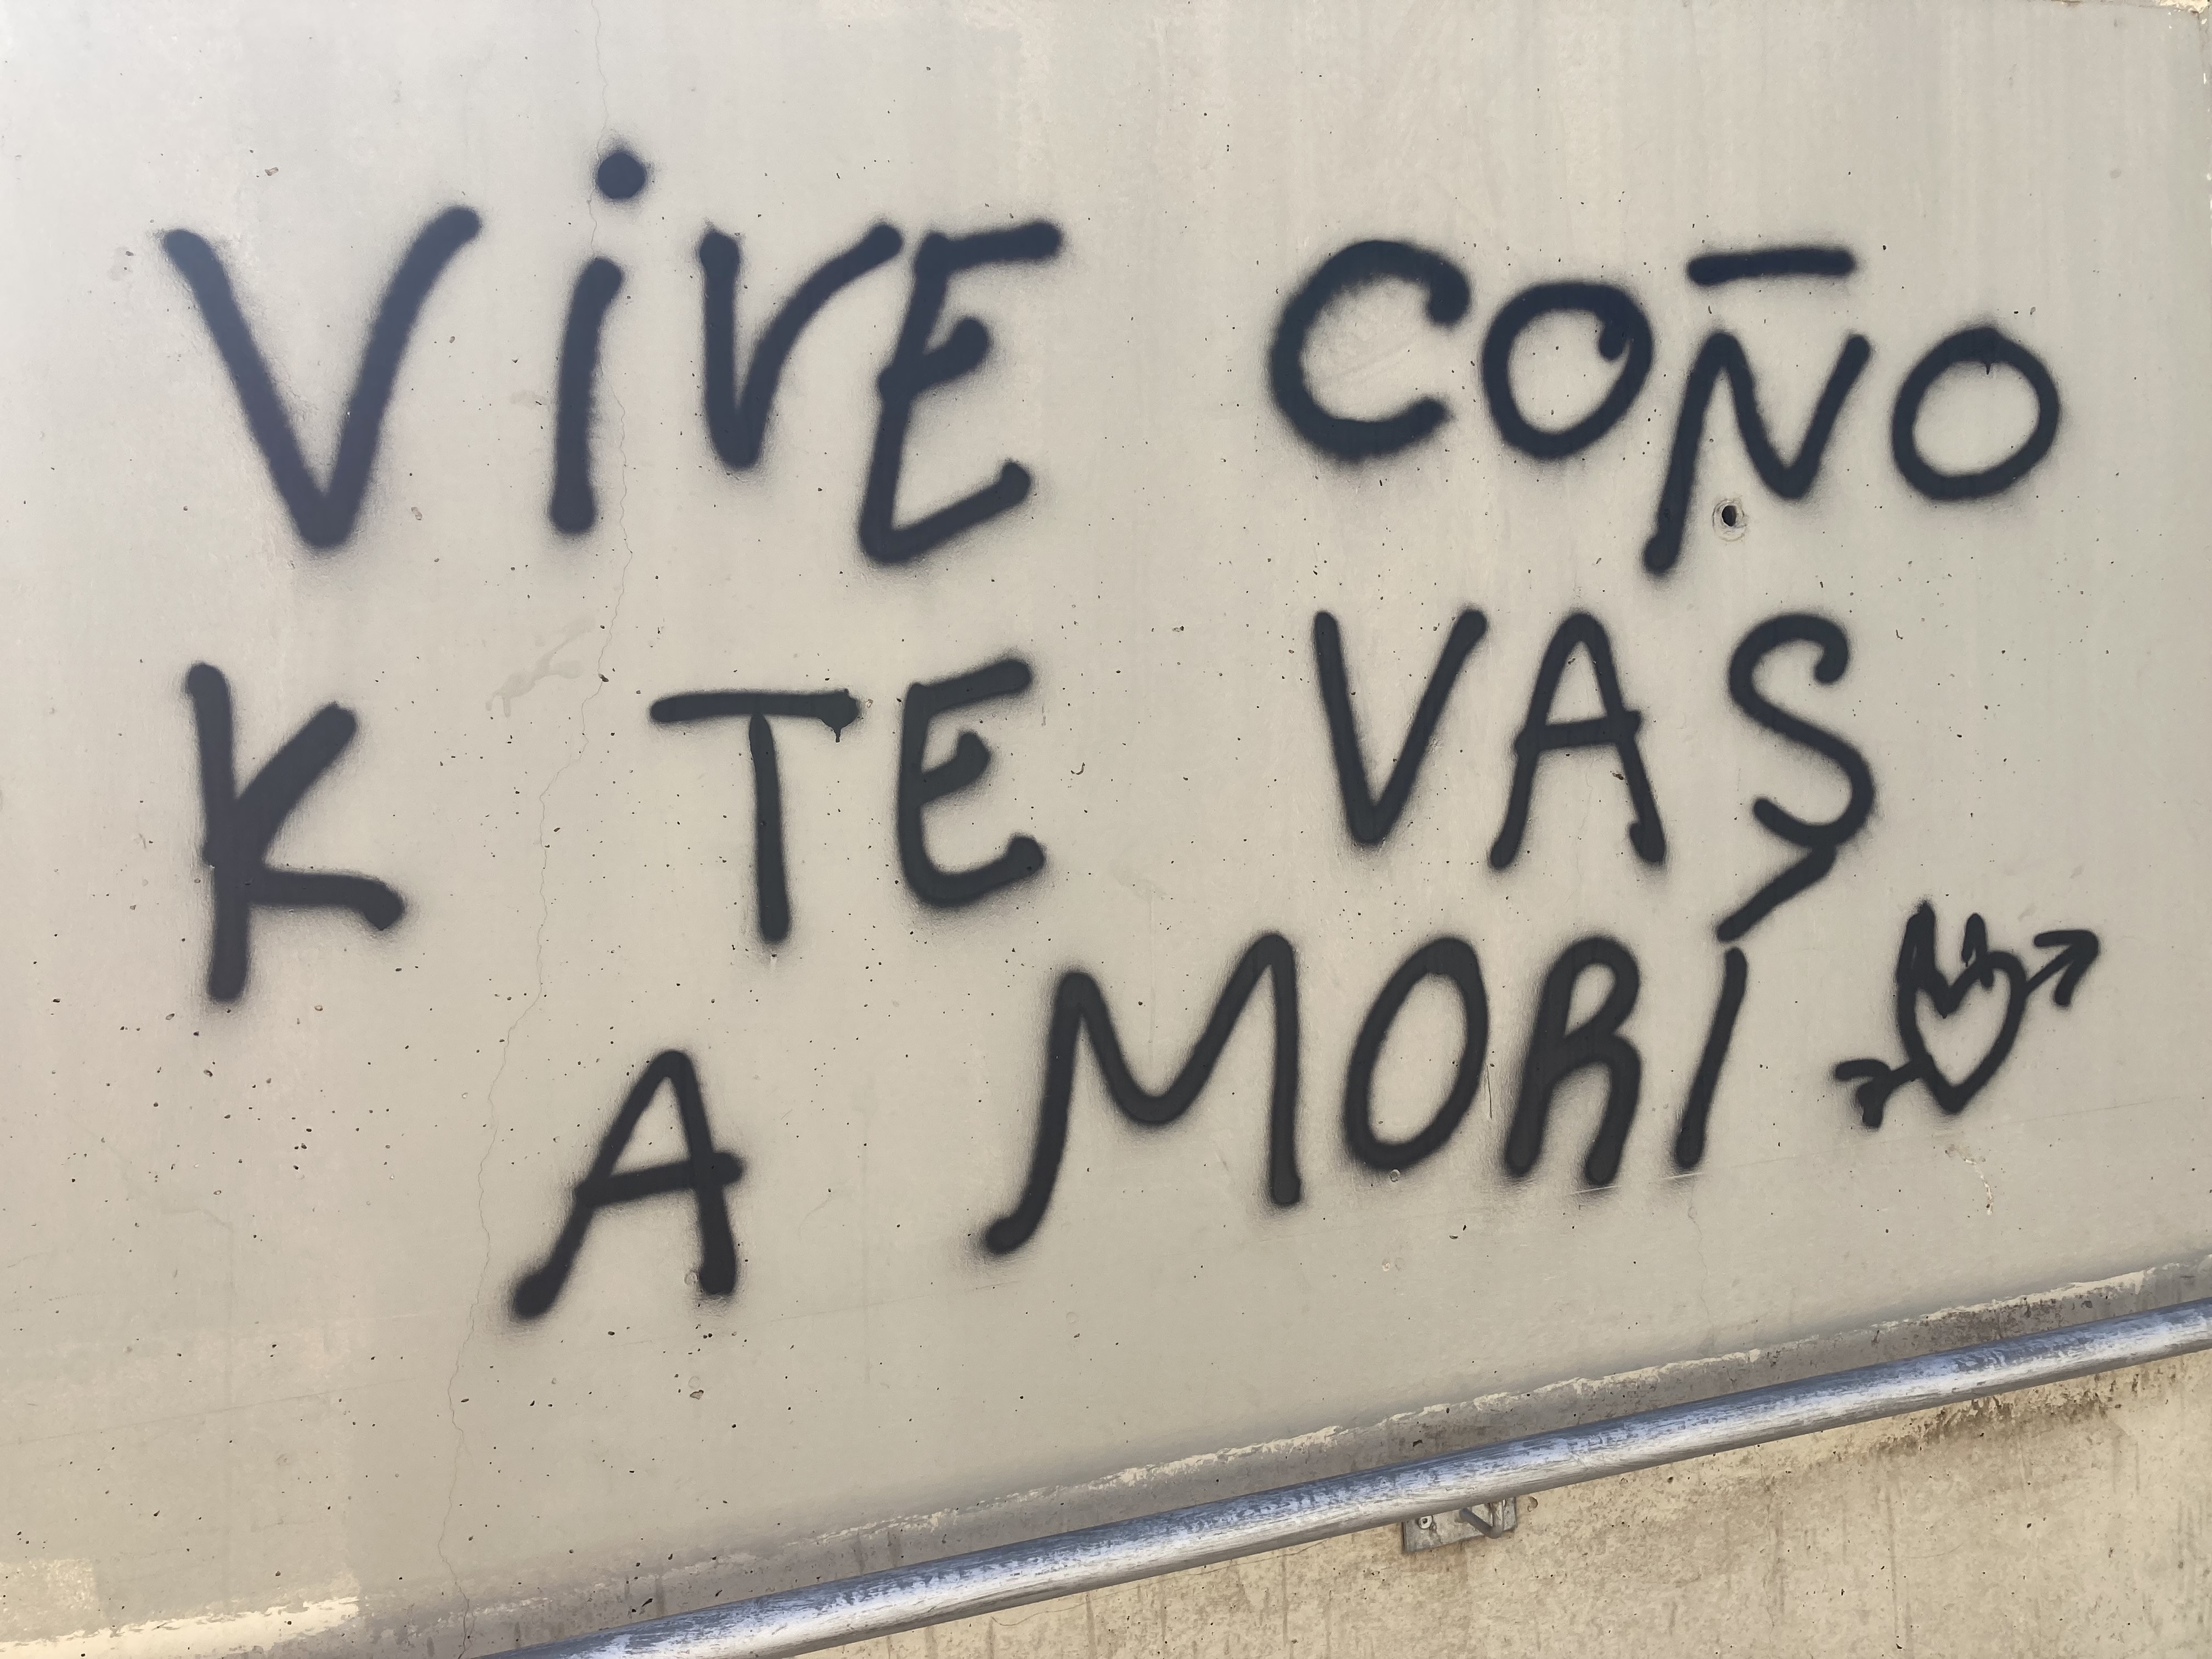 ViVE COÑO
K TE VAS
A MORÍ